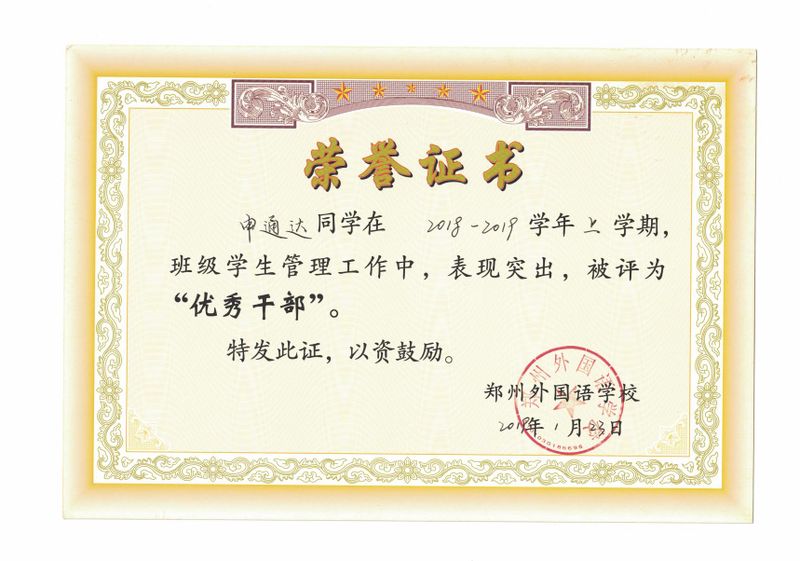 荣誉证书
申通达同学在 2018-2019 学年上学期，
班级学生管理工作中，表现突出，被评为
“优秀干部”。
特发此证，以资鼓励。
郑州外国语学校
2019年1月23日
郑州外国语学校